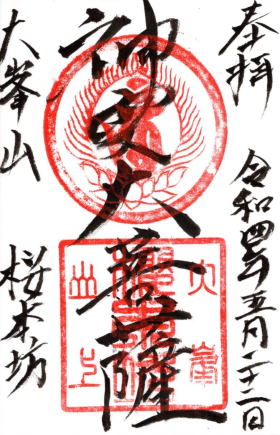 奉拝
令和四年五月二十二日
神変大菩薩
大峯山
桜本坊
大峯
山上